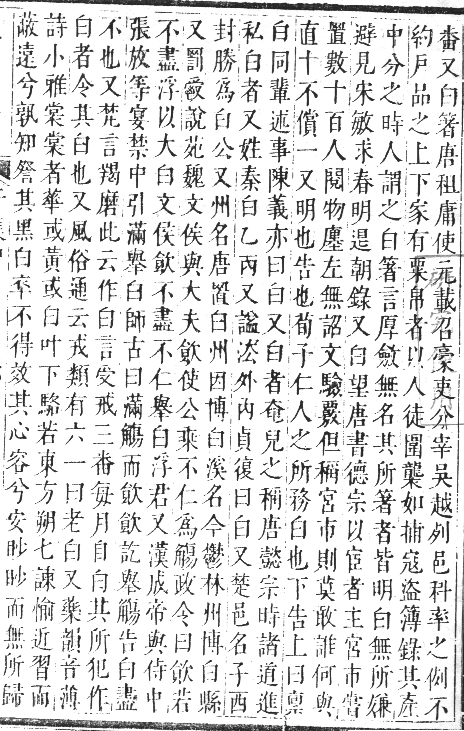 番又白著唐租庸使元載召豪吏分宰吳越列邑科率之例不
約戶品之上下家有粟帛者以人徒圍襲如捕寇盜簿錄其產
中分之時人謂之白著言厚斂無名其所著者皆明白無所嫌
避見宋敏求春明退朝錄又白望唐書德宗以宦者主宮市嘗
置數十百人閱物廛左無詔文驗覈但稱宮市則莫敢誰何與
直十不償一又明也告也荀子仁人之所務白也下告上曰稟
白同輩述事陳義亦曰白又白者奄兒之稱唐懿宗時諸道進
私白者又姓秦白乙丙又諡法外內貞復曰白又楚邑名子西
封勝爲白公又州名唐置白州因博白溪名今鬱林州博白縣
又罰爵說苑魏文侯與大夫飲使公乘不仁爲觴政令曰飲若
不盡浮以大白文侯飲不盡不仁舉白浮君又漢成帝與侍中
張放等宴禁中引滿舉白師古曰滿觴而飲飲訖舉觴告白盡
不也又梵言羯磨此云作白言受戒三番每月自白其所犯作
白者令其白也又風俗通云戎類有六一曰老白又藥韻音薄
詩小雅裳裳者華或黃或白叶下駱若東方朔七諫愉近習而
蔽遠兮孰知詧其黑白卒不得效其心容兮安眇眇而無所歸